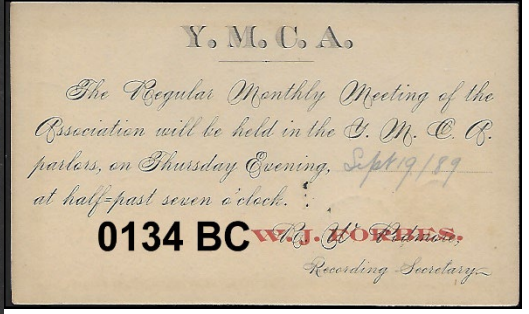 Y. M. C. A.
The Regular Monthly Meeting of the
Association will be held in the Y. M. C. A.
parlors, on Thursday Evening, Sept 19/89
at half=past seven o'clock.
0134 BC W. J. FORBES.
Recording Secretary